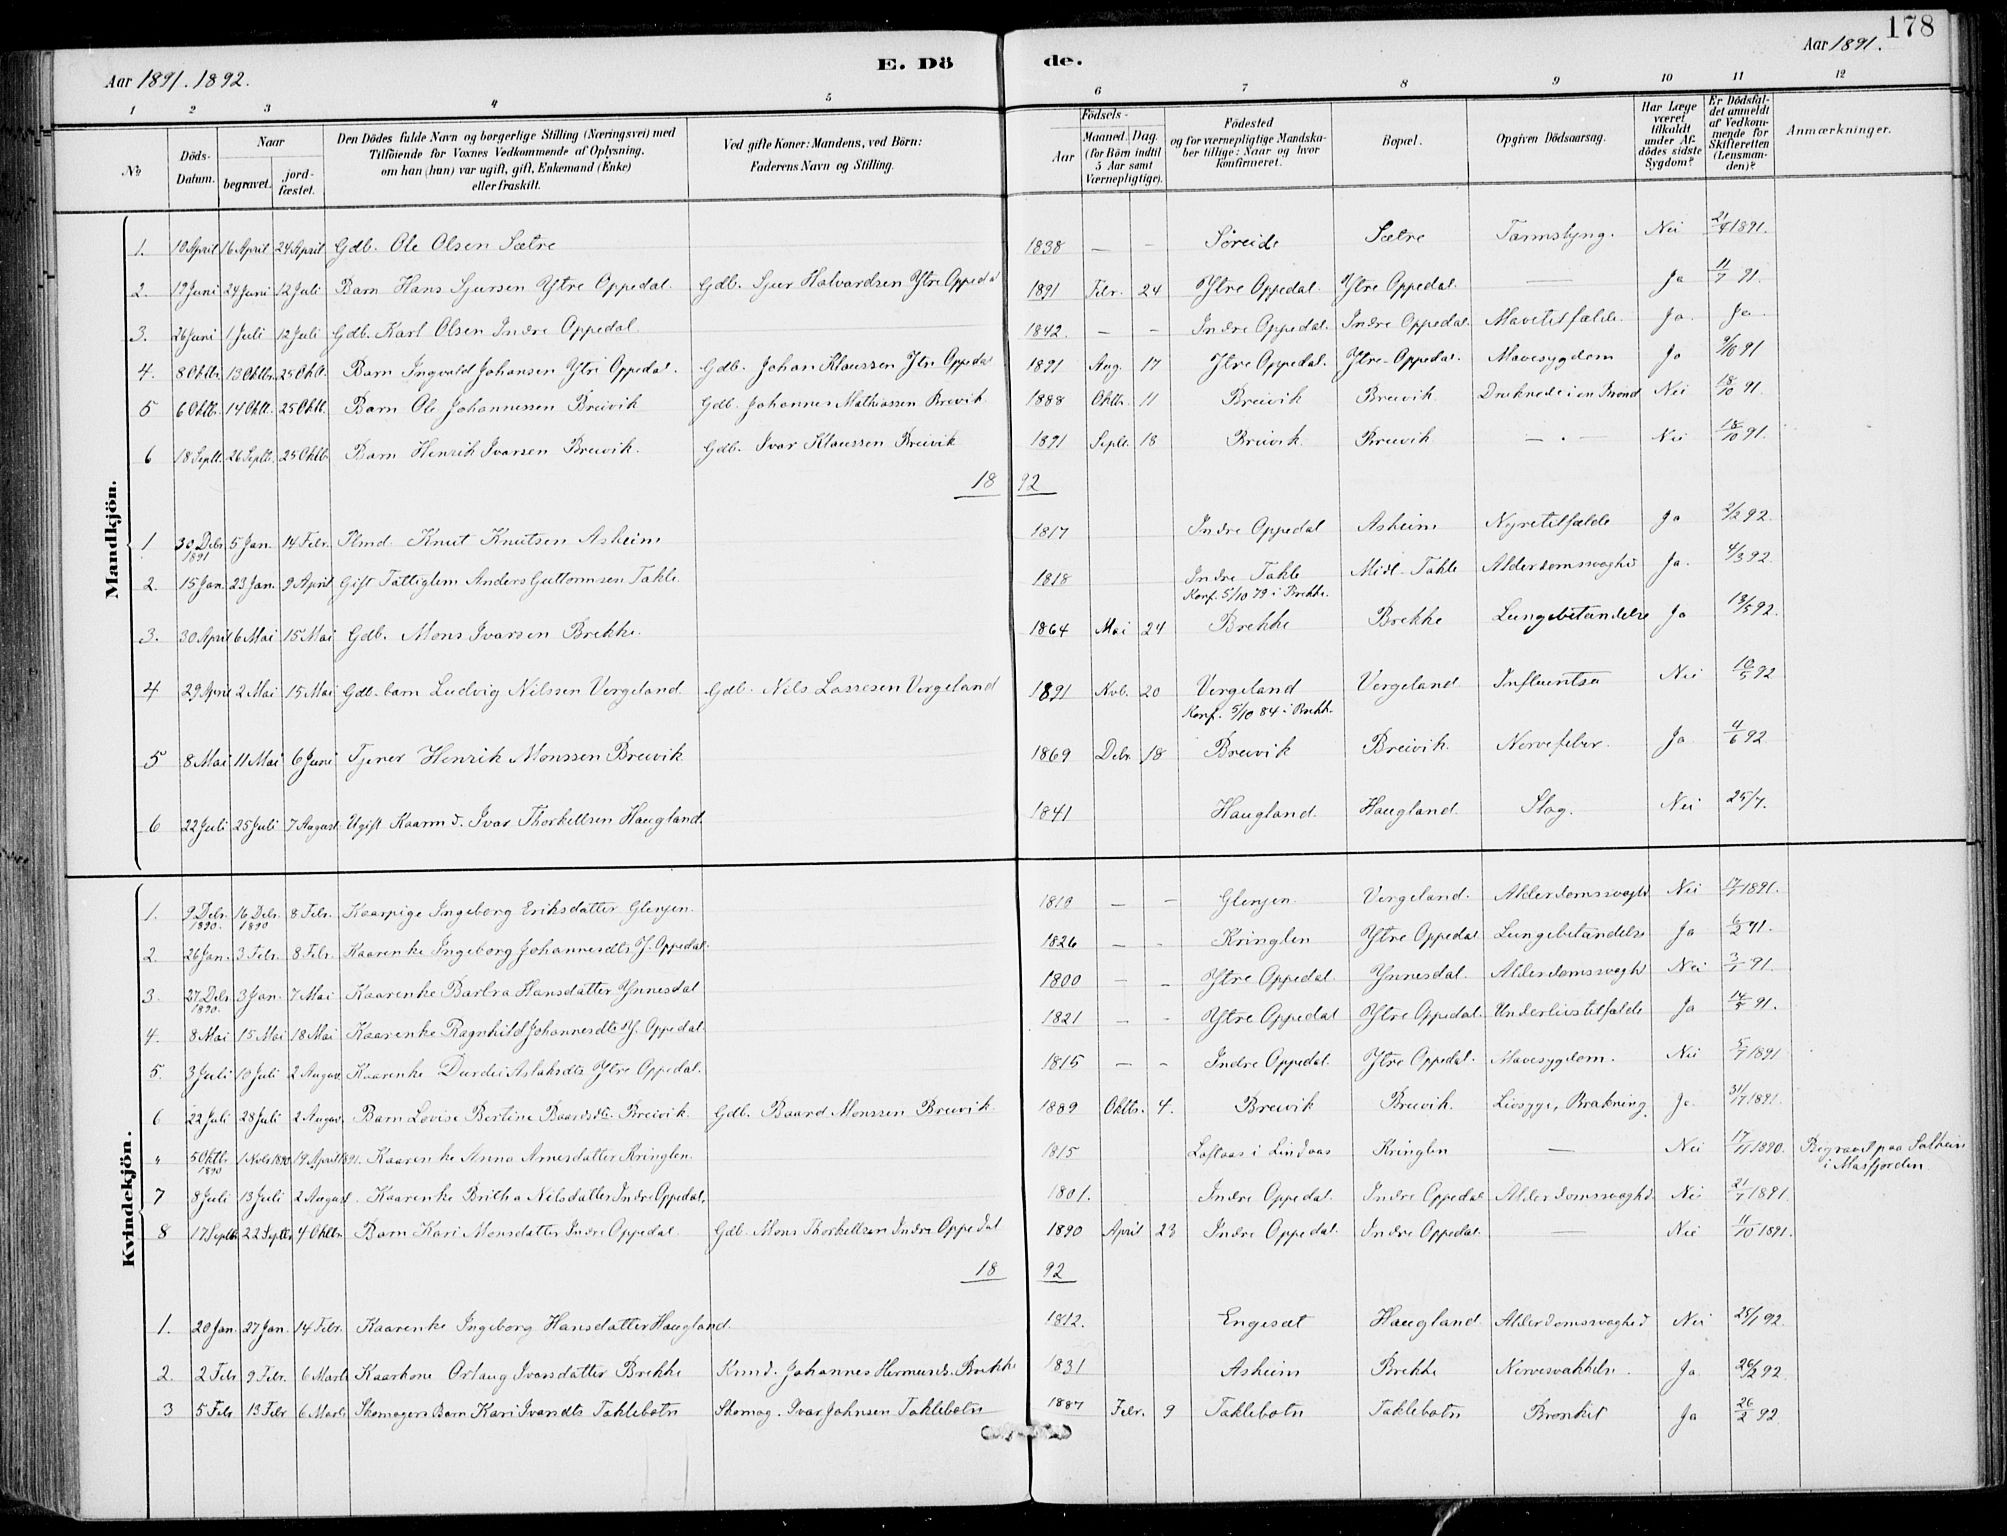 178
Aar 1891. 1892.
E. Dö
de.
Aar 1891.
1 2 3 4 5 6 7 8 9 10 11 12
No
Döds-Datum.
Naar
begravet.
jord-fæstet.
Den Dödes fulde Navn og borgerlige Stilling (Næringsvei) med
Tilföiende for Voxnes Vedkommende af Oplysning.
om han (hun) var ugift, gift, Enkemand (Enke)
eller fraskilt.
Ved gifte Koner: Mandens, ved Börn:
Faderens Navn og Stilling.
Födsels-
Aar
Maaned. Dag.
(for Börn indtil
5 Aar samt
Værnepligtige).
Födested
og for værnepligtige Mandska-
ber tillige: Naar og hvor
konfirmeret.
Bopæl.
Opgiven Dödsaarsag.
Har Læge
været
tilkaldt
under Af-
dödes sidste
Sygdom?
Er Dödsfal-
det anmeldt
af Vedkom-
mende for
Skifteretten
(Lensman-
den)?
Anmærkninger.
Mandkjön.
1. 10 April 16 April 24 April Gdb. Ole Olsen Sætre 1838 — — Söreide Sætre Tarmslyng. Nei 21/4 1891.
2. 19 Juni 24 Juni 12 Juli Barn Hans Sjursen Ytre Oppedal. Gdb. Sjur Halvardsen Ytre Oppedal 1891 Febr. 24 Ytre Oppedal. Ytre Oppedal. — Ja 11/7 91.
3. 26 Juni 1 Juli 12 Juli Gdb. Karl Olsen Indre Oppedal 1842. — — Indre Oppedal. Indre Oppedal. Mavetilfælde Ja. Ja
4. 8 Oktbr. 13 Oktbr. 25 Oktb. Barn Ingvald Johansen Ytre Oppedal. Gdb. Johan Klaussen Ytr. Oppedal 1891 Aug. 17 Ytre Oppedal. Ytre Oppedal. Mavesygdom Ja 9/10 91
5 6 Oktb. 14 Oktb. 25 Oktb. Barn Ole Johannessen Breivik Gdb. Johannes Mathiassen Breivik 1888 Oktbr. 11 Breivik Breivik Druknede i en Brönd Nei 18/10 91.
6 18 Septb. 26 Septb. 25 Oktb. Barn Henrik Ivarsen Breivik. Gdb. Ivar Klaussen Breivik 1891 Septb. 18 Breivik Breivik — Nei 18/10 91.
18 92
1 30 Debr. 1891 5 Jan. 14 Febr. Plmd. Knut Knutsen Asheim 1817 Indre Oppedal Asheim Nyretilfælde Ja 2/2 92.
2. 15 Jan. 23 Jan. 9 April Gift Fattiglem Anders Guttormsen Takle 1818 Indre Takle Midt-Takle Alderdomssvaghd Ja. 4/3 92.
Konf. 5/10 79 i Brekke.
3. 30 April 6 Mai 15 Mai Gdb. Mons Ivarsen Brekke. 1864 Mai 24 Brekke Brekke Lungebetændelse Ja 13/5 92.
4 29 April 2 Mai 15 Mai Gdb. barn Ludvig Nilssen Vergeland Gdb. Nils Lassesen Vergeland 1891 Nvb. 20 Vergeland Vergeland. Influentsa Nei 10/5 92
Konf. 5/10 84 i Brekk.
5 8 Mai 11 Mai 6 Juni Tjener Henrik Monssen Breivik 1869 Debr. 18 Breivik Breivik. Nervefeber. Ja 4/6 92
6 22 Juli 25 Juli 7 August. Ugift Kaarmd. Ivar Thorkellsen Haugland. 1841 Haugland. Haugland. Slag. Nei 25/7.
Kvindekjön.
1. 9 Debr. 1890. 16 Debr. 1890 8 Febr. Kaarpige Ingeborg Eriksdatter Glenjen. 1819 — — Glenjen. Vergeland. Alderdomssvaghd. Nei 1891.
2. 26 Jan. 3 Febr. 8 Febr. Kaarenke Ingeborg Johannesdtr Y. Oppedal. 1826 — — Kringlen Ytre Oppedal Lungebetændelse Ja 6/2 91.
3. 27 Debr. 1890. 3 Jan. 7 Mai Kaarenke Barbra Hansdatter Ynnesdal 1800 — — Ytre Oppedal Ynnesdal. Alderdomssvaghd Nei 3/1 91.
4. 8 Mai 15 Mai 18 Mai Kaarenke Ragnhild Johannesdtr Y. Oppedal. 1821 — — Ytre Oppedal Ytre Oppedal. Underlivstilfælde Ja 14/5 91.
5. 3 Juli 10 Juli 2 August Kaarenke Durdei Aslaksdtr Ytre Oppedal. 1815 — — Indre Oppedal. Ytre Oppedal. Mavesygdom. Nei 5/7 1891
6 22 Juli 28 Juli 2 August. Barn Lovise Bertine Baardsdtr. Breivik. Gdb. Baard Monssen Breivik. 1889 Oktbr. 4. Breivik Breivik. Livsyge, Brækning. Ja. 31/7 1891.
" 5 Oktbr 1890 1 Nvbr 1890 19 April 1891. Kaarenke Anna Arnesdatter Kringlen. 1815 Loftaas i Lindaas Kringlen — Nei 17/11 1890. Begravet paa Solheim
i Masfjorden
7 8 Juli 13 Juli 2 August. Kaarenke Britha Nilsdatter Indre Oppedal. 1801. Indre Oppedal. Indre Oppedal Alderdomssvaghd Nei 21/7 1891.
8 17 Septb. 22 Septb. 4 Oktbr. Barn Kari Monsdatter Indre Oppedal. Gdb. Mons Thorkellsen Indre Oppedal 1890 April 23 Indre Oppedal. Indre Oppedal. — Nei 11/10 1891.
18 92
1. 20 Jan. 27 Jan. 14 Febr. Kaarenke Ingeborg Hansdatter Haugland. 1812. Engesæt Haugland. Alderdomssvaghed Nei 25/1 92.
2. 2 Febr 9 Febr. 6 Marts Kaarkone Orlaug Ivarsdatter Brekke Krmd. Johannes Hermunds. Brekke 1831 Asheim Brekke Nervesvækkelse. Ja. 26/2 92.
3 5 Febr 13 Febr 6 Marts Skomagers Barn Kari Ivarsdtr Taklebotn Skomag. Ivar Johnsen Taklebotn 1887 Febr. 9 Taklebotn Taklebotn Bronkit Ja 26/2 92.